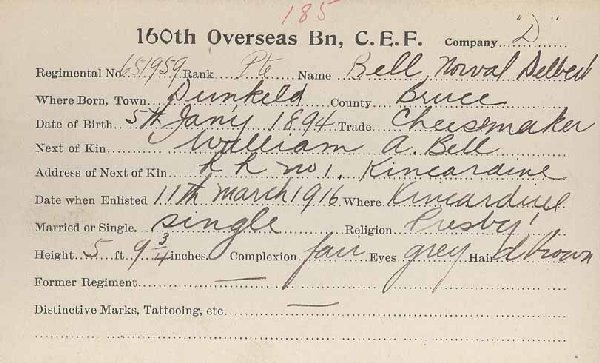 185
160th Overseas Bn, C.E.F. Company "D"
Regimental No. 651959 Rank Pte Name Bell, Norval Delbert
Where Born, Town Dunkeld County Bruce
Date of Birth 5th Jany 1894 Trade Cheesemaker
Next of Kin William A. Bell
Address of Next of Kin R R no 1. Kincardine
Date when Enlisted 11th March 1916 Where Kincardine
Married or Single single Religion Presby'
Height 5 ft 9 3/4 inches. Complexion fair Eyes grey Hair d brown
Former Regiment —
Distinctive Marks, Tattooing, etc. —